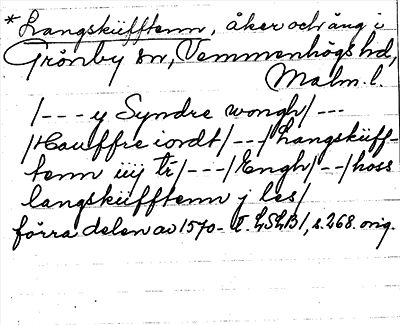 *Langskiifftenn, åker och äng i
Grönby sn, Vemmenhögs hd,
Malm. l.
/--- y Syndre wongh/---
/Hauffre iordt/---/Langskiiff-
tenn iiij tr/---/Engh/--/hoss
langskiifftenn j les/
förra delen av 1570-t. LSLB1, s. 268. orig.